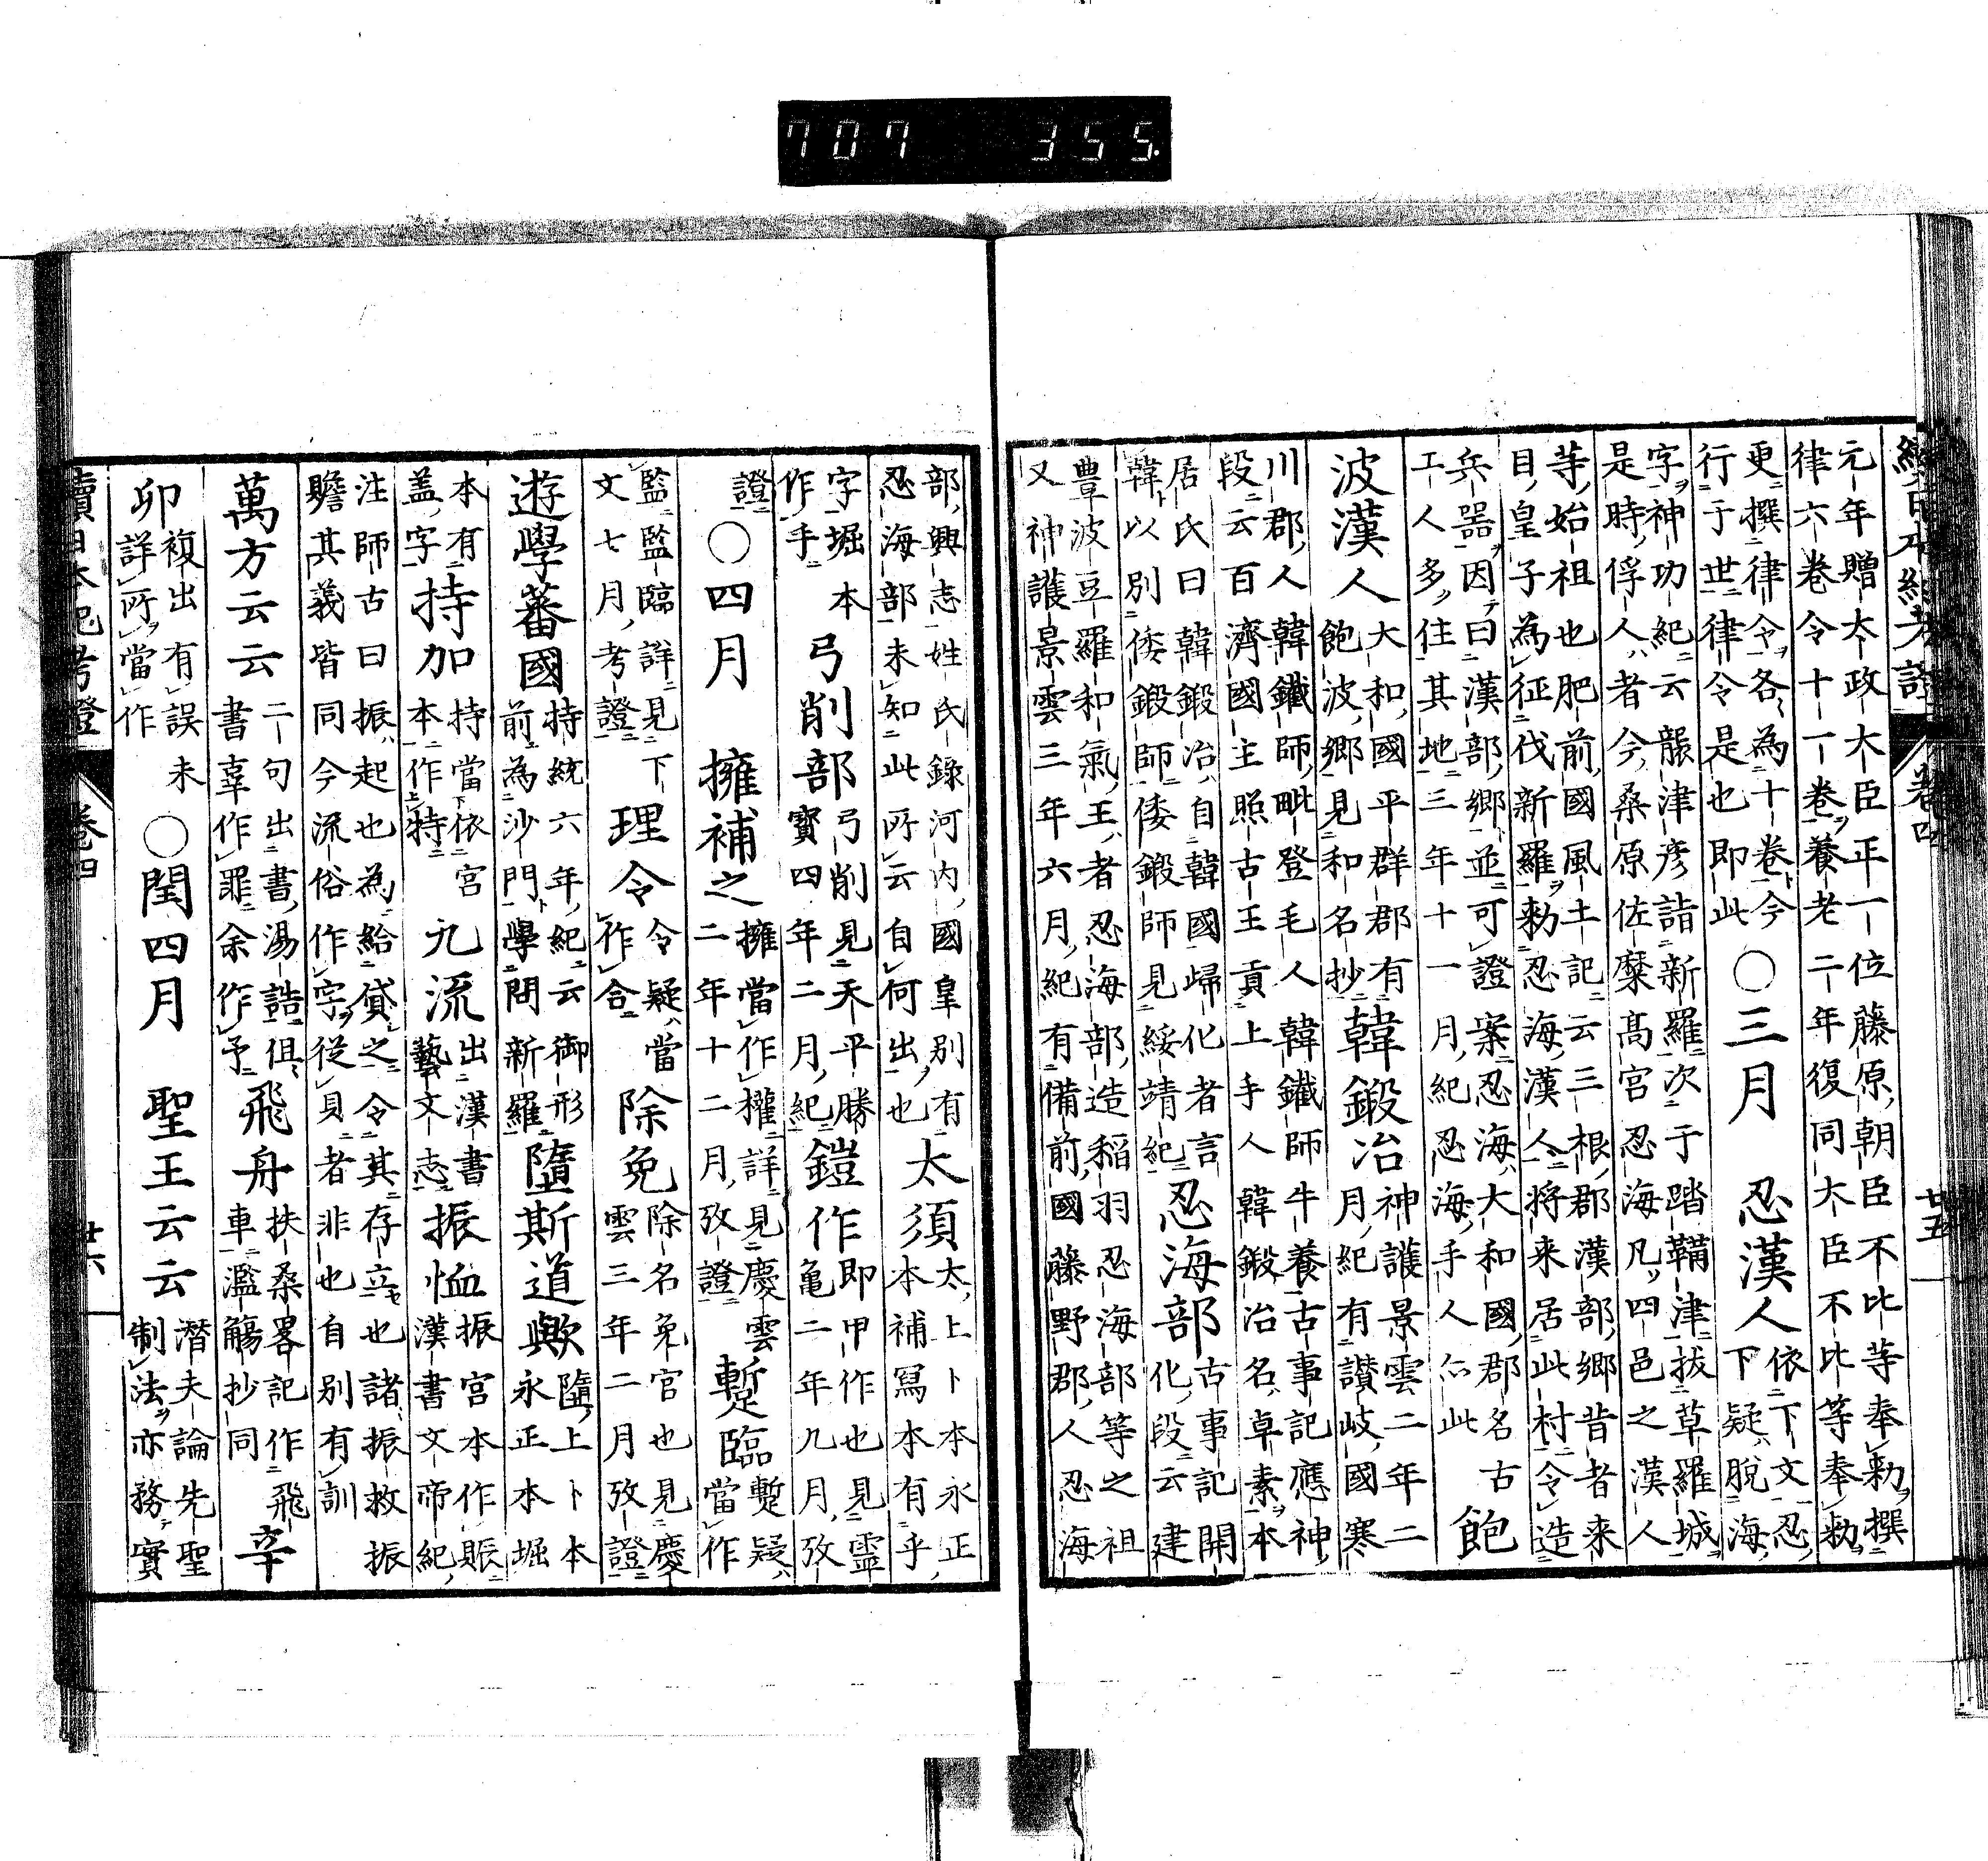 707 355.
續日本紀考證 卷四 廿五
元年贈太政大臣正一位藤原朝臣不比等奉勅撰
律六卷令十一卷養老二年復同大臣不比等奉勅
更撰律令各為十卷今
行于世律令是也即此
○三月 忍漢人
依下文忍
下疑脫海
字神功紀云襲津彥詣新羅次于蹈鞴津拔草羅城
是時俘人者今桑原佐糜髙宮忍海凡四邑之漢人
等始祖也肥前國風土記云三根郡漢部鄉昔者来
目皇子為征伐新羅勅忍海漢人将来居此村令造
兵器因曰漢部鄉並可證案忍海大和國郡名古
工人多住其地三年十一月紀忍海手人亽此
飽
波漢人
大和國平群郡有
飽波鄉見和名抄
韓鍛冶
神護景雲二年二
月紀有讃岐國寒
川郡人韓鐵師毗登毛人韓鐵師牛養古事記應神
段云百濟國主照古王貢上手人韓鍛冶名卓素本
居氏曰韓鍛冶自韓國歸化者言
韓以別倭鍛師倭鍛師見綏靖紀
忍海部
古事記開
化段云建
豊波豆羅和氣王者忍海部造稲羽忍海部等之祖
又神護景雲三年六月紀有備前國藤野郡人忍海
部興志姓氏錄河內國皇別有
忍海部未知此所云自何出也
太須
太上卜本永正
本補寫本有乎
字堀本
作手
弓削部
弓削見天平勝
寶四年二月紀
鎧作
即甲作也見靈
亀二年九月攷
證
○四月 擁補之
擁當作權詳見慶雲
二年十二月攷證
蹔臨
蹔疑
當作
監監臨詳見下
文七月考證
理令
令疑當
作合
除免
除名免官也見慶
雲三年二月攷證
遊學蕃國
持統六年紀云御形
前為沙門學問新羅
墮斯道歟
隨上卜本
永正本堀
本有
盖字
持加
持當依宮
本作特
九流
出漢書
藝文志
振恤
振宮本作賑
漢書文帝紀
注師古曰振起也為給貸之令其存立也諸振救振
贍其義皆同今流俗作字從貝者非也自別有訓
萬方云云
二句出書湯誥俱
書辜作罪余作予
飛舟
扶桑畧記作飛
車濫觴抄同
辛
卯
複出有誤未
詳所當作
○閏四月 聖王云云
潛夫論先聖
制法亦務實
續日本紀考證 卷四 廿六